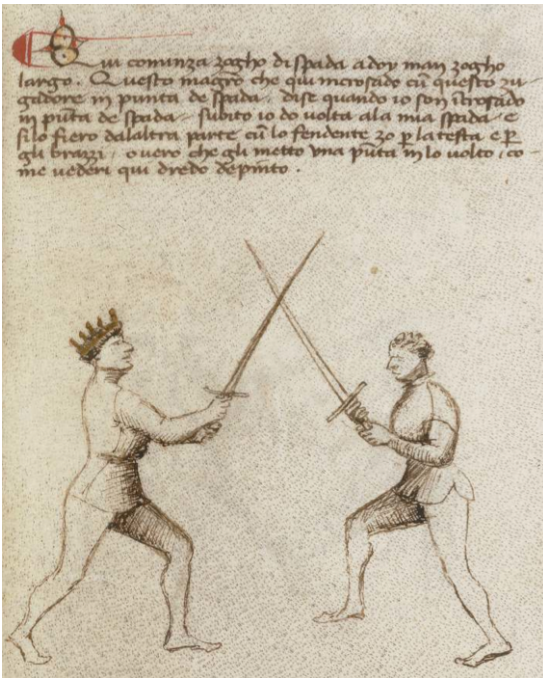 Qui cominza zogho di spada a doy man zogho
largo. Questo magrō che qui incrosado cū questo zu-
gadore in punta de spada, dise quando io son ĩcrosado
in pūta de spada, subito io do volta ala mia spada, e
filo fiero dalaltra parte cū lo fendente zo p̱ la testa e p̱
gli brazzi, o uero che gli metto vna pūta in lo volto, co-
me uederi qui dredo depinto.